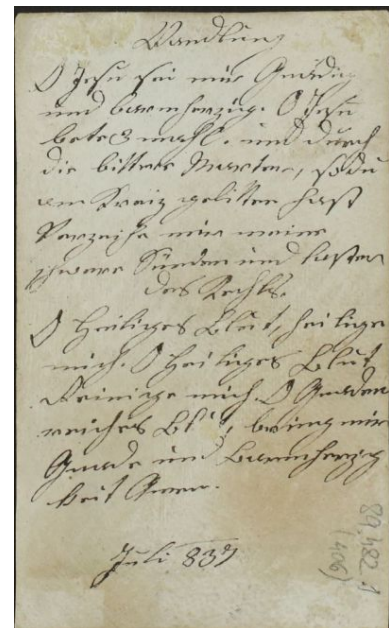 Wandlung
O Jesu sei mir Gnädig
und barmherzig. O Jesu
bete 3 mahl. und durch
die bittere Marter, so du
am Kreiz gelitten hast
Verzeihe mir meine
schwere Sünden und laster
des
O Heiliges Blut, heilige
mich. O Heiliges Blut
Reinige mich. O Gnaden
reiches Blut, bring mir
Gnade und Barmherzig
keit Amen.
Juli 837
89,482 1
(406)